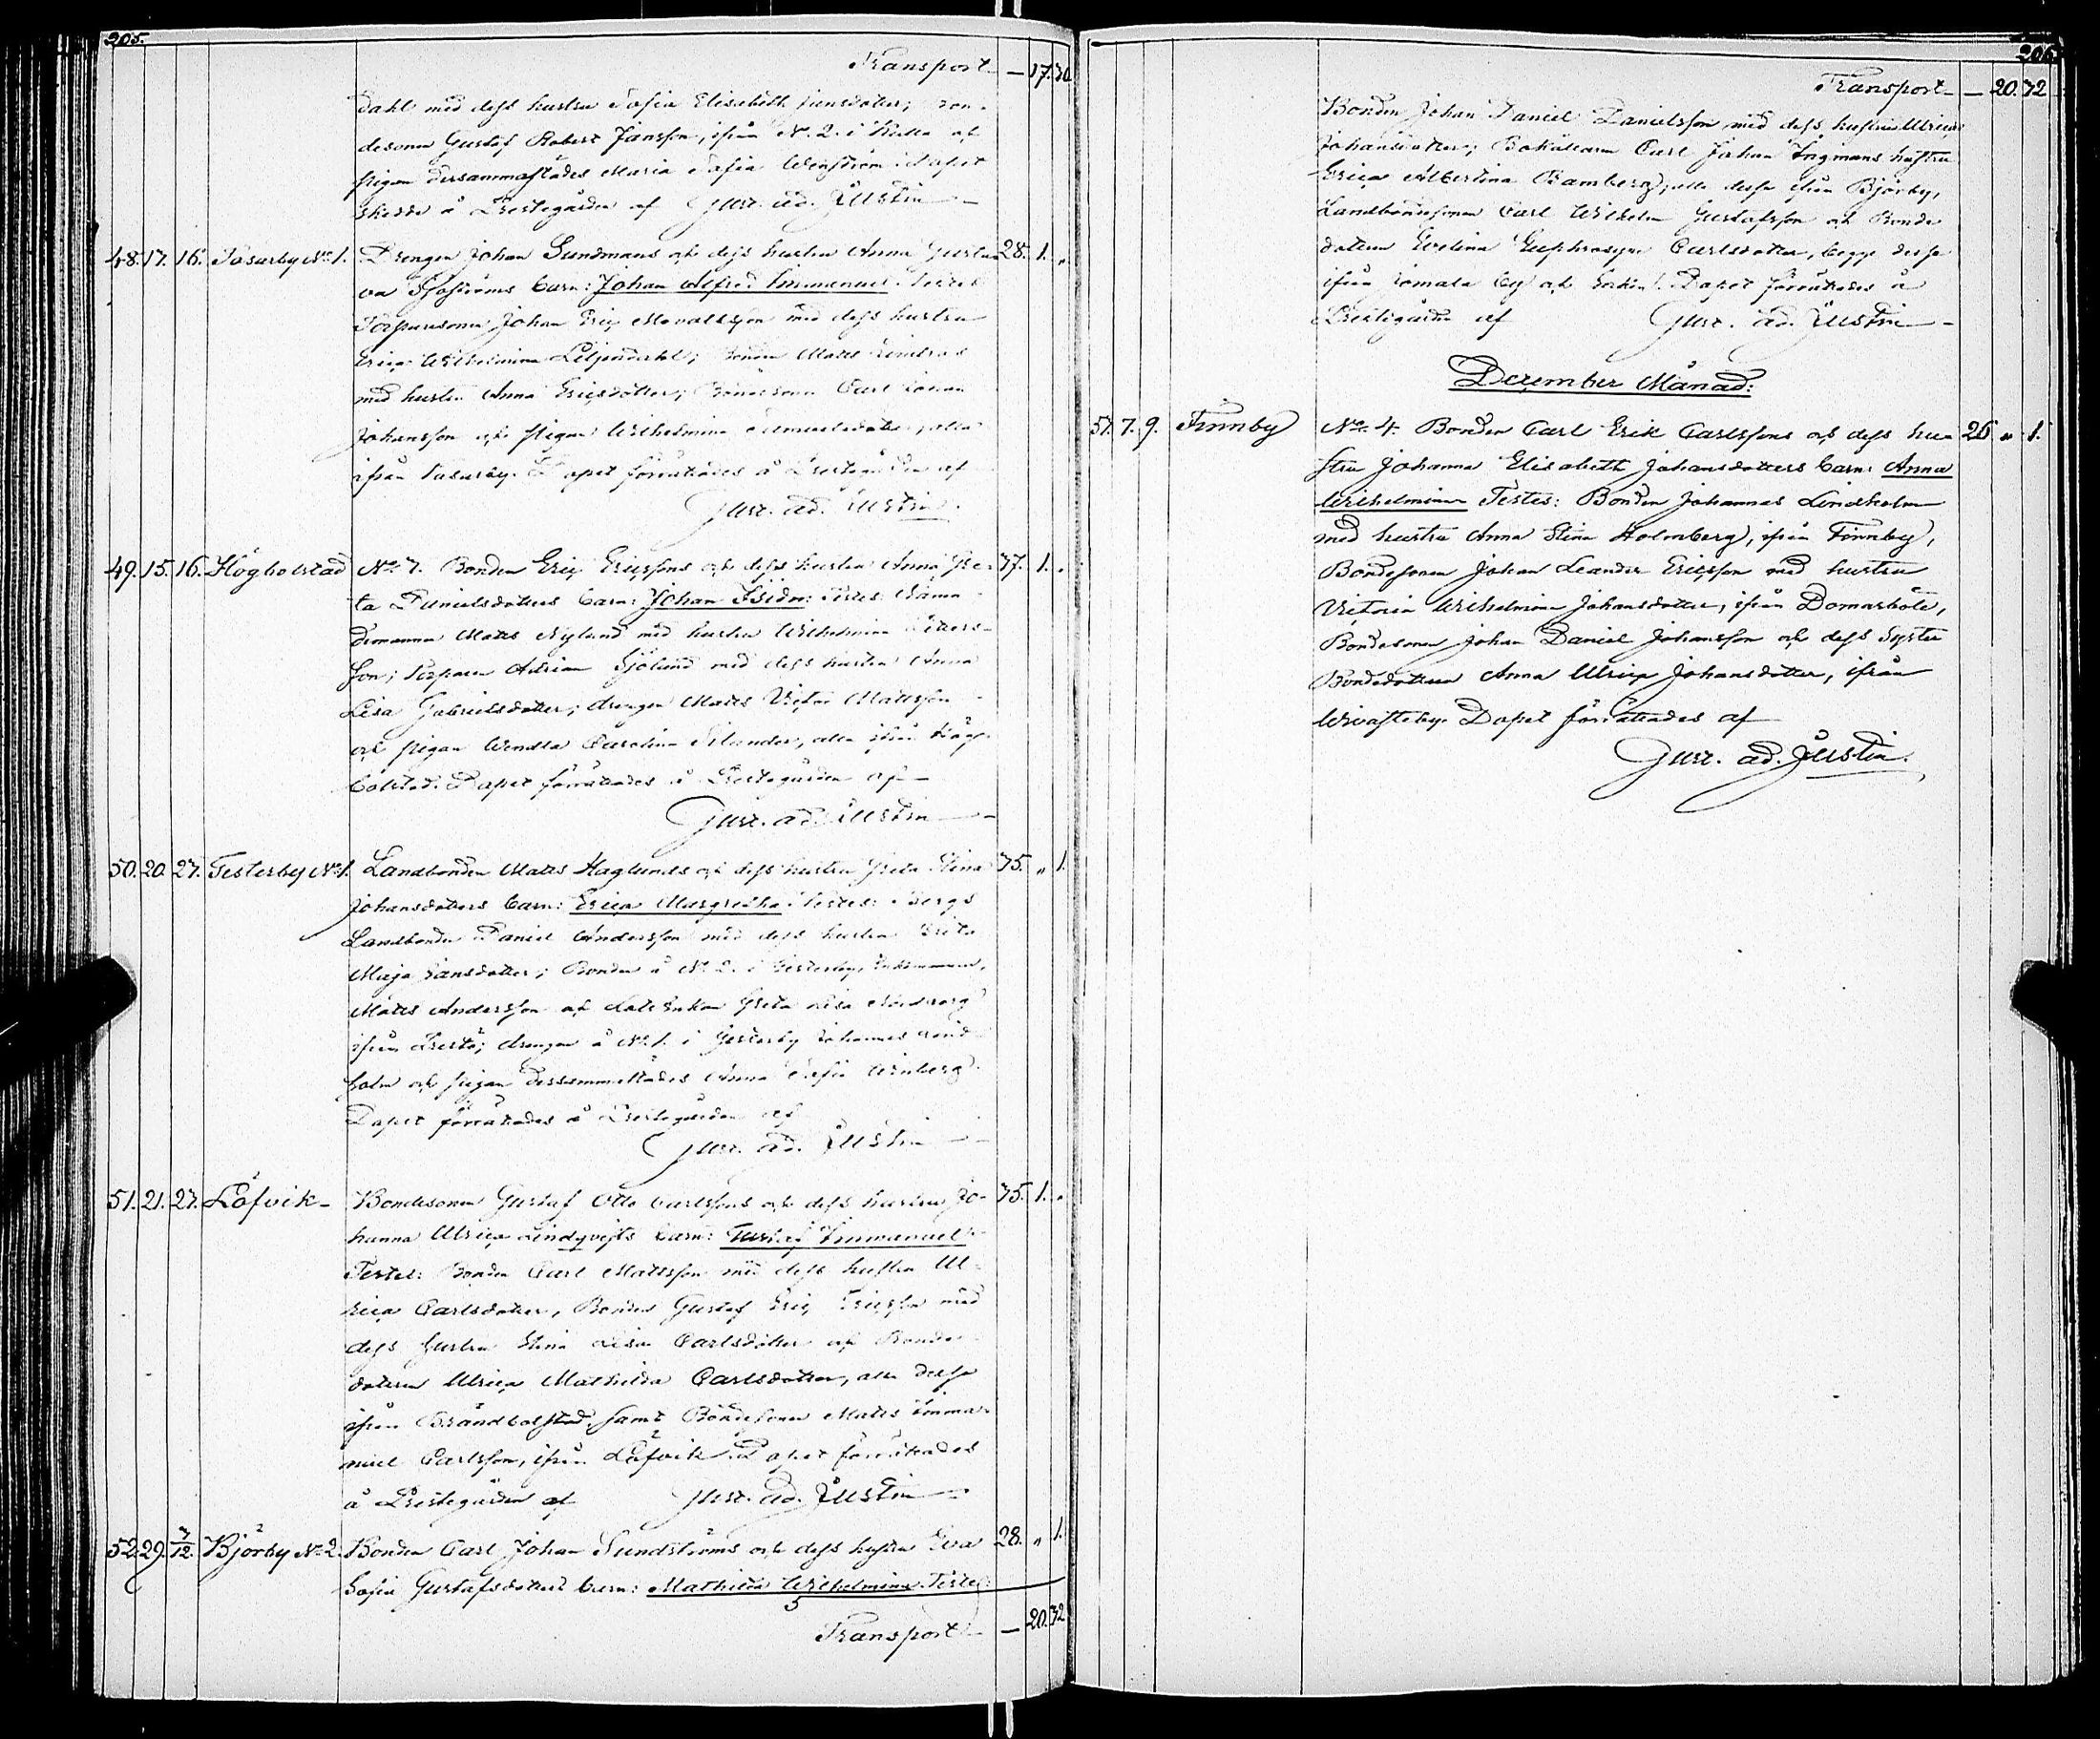 205.
Transport — 17. 30
dahl med dess hustru Sofia Elisabeth Jansdotter; Bon-
desonen Gustaf Robert Jansson, ifrån N:o 2 i och
pigan dersammastädes Maria Sofia Dopet
skedde å Prestegården af Gust. ad. Justin
48. 17. 16. Påsarby No 1. Drengen Johan Sundmans och dess hustru Anna Gusta- 28. 1. "
va Sjöströms barn: Johan Alfred Immanuel. Testes:
Torparesonen Johan Eric med dess hustru
Erica Wilhelmina Liljendahl; Bonden Matts
med hustru Anna Ericsdotter; Bondesonen Carl Johan
Johansson och pigan Wilhelmina alla
ifrån Påsarby. Dopet förrättades å Prestegården af
Gust. ad. Justin.
49. 15. 16. Högbolstad No 7. Bonden Eric Ericssons och dess hustru Anna Gre- 77. 1. "
ta Danielsdotters barn: Johan Isidor: Testes: Näm-
demannen Matts Nylund med hustru Wilhelmina Petters-
son; Torparen Adrian Sjölund med dess hustru Anna
Lisa Gabrielsdotter; drengen Matts Victor Mattsson
och pigan Wendla Carolina Selander, alla ifrån Hög-
bolstad. Dopet förrättades å Prestegården af
Gust. ad. Justin
50. 20. 27. Gesterby No 1. Landbonden Matts Haglunds och dess hustru Greta Stina 75. " 1.
Johansdotters barn: Erica Margretha. Testes: Bergs
Landbonden Daniel Andersson med dess hustru Greta
Maja Jansdotter; Bonden å No 2. i Gesterby,
Matts Andersson och Enkan Greta Lisa
ifrån drengen å No 1. i Gesterby Johannes Lind-
holm och pigan dersammastädes Anna Sofia
Dopet förrättades å Prestegården af
Gust. ad. Justin
51. 21. 27. Löfvik Bondesonen Gustaf Otto Carlssons och dess hustru Jo- 75. 1. "
hanna Ulrica Lindqvists barn: Gustaf Immanuel.
Testes: Bonden Carl Mattsson med dess hustru Ul-
rica Carlsdotter, Bonden Gustaf Eric Ericsson med
dess hustru Stina Lisa Carlsdotter och Bonde-
dottren Ulrica Mathilda Carlsdotter, alla dessa
ifrån Brändbolstad, samt Bondesonen Matts Imma-
nuel Carlsson, ifrån Löfvik. Dopet förrättades
å Prestegården af Gust. ad. Justin
52. 29. 7/12. Björby No 2. Bonden Carl Johan Sundströms och dess hustru Eva 28. " 1.
Sofia Gustafsdotters barn: Mathilda Wilhelmina. Testes:
Transport — 20. 32
206.
Transport — 20. 32
Bonden Johan Daniel Danielsson med dess hustru Ulrica
Johansdotter; Bokhållaren Carl Johan Ingmans hustru
Erica Albertina Ramberg, alla dessa ifrån Björby,
Landbondesonen Carl Wilhelm Gustafsson och Bonde-
dottren Evelina Euphrosyne Carlsdotter, begge dessa
ifrån Tomala by och Socken. Dopet förrättades å
Prestegården af Gust. ad. Justin
December Månad:
51. 7. 9. Finnby No 4. Bonden Carl Erik Carlssons och dess hu- 26 " 1.
stru Johanna Elisabeth Johansdotters barn: Anna
Wilhelmina Testes: Bonden Johannes Lindholm
med hustru Anna Stina Holmberg, ifrån Finnby,
Bondesonen Johan Leander Ericsson med hustru
Victoria Wilhelmina Johansdotter, ifrån Domarböle,
Bondesonen Johan Daniel Johansson och dess Syster
Bondedottren Anna Ulrica Johansdotter, ifrån
Wivasteby. Dopet förrättades af
Gust. ad. Justin.